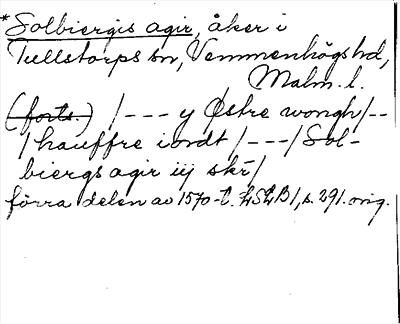 *Solbiergis agir, åker i
Tullstorps sn, Vemmenhögs hd,
Malm. l.
(forts.) /--- y Østre wongh/--
/hauffre iordt/---/Sol-
biergs agir iij skr/
förra delen av 1570-t. LSLB1, s. 291. orig.